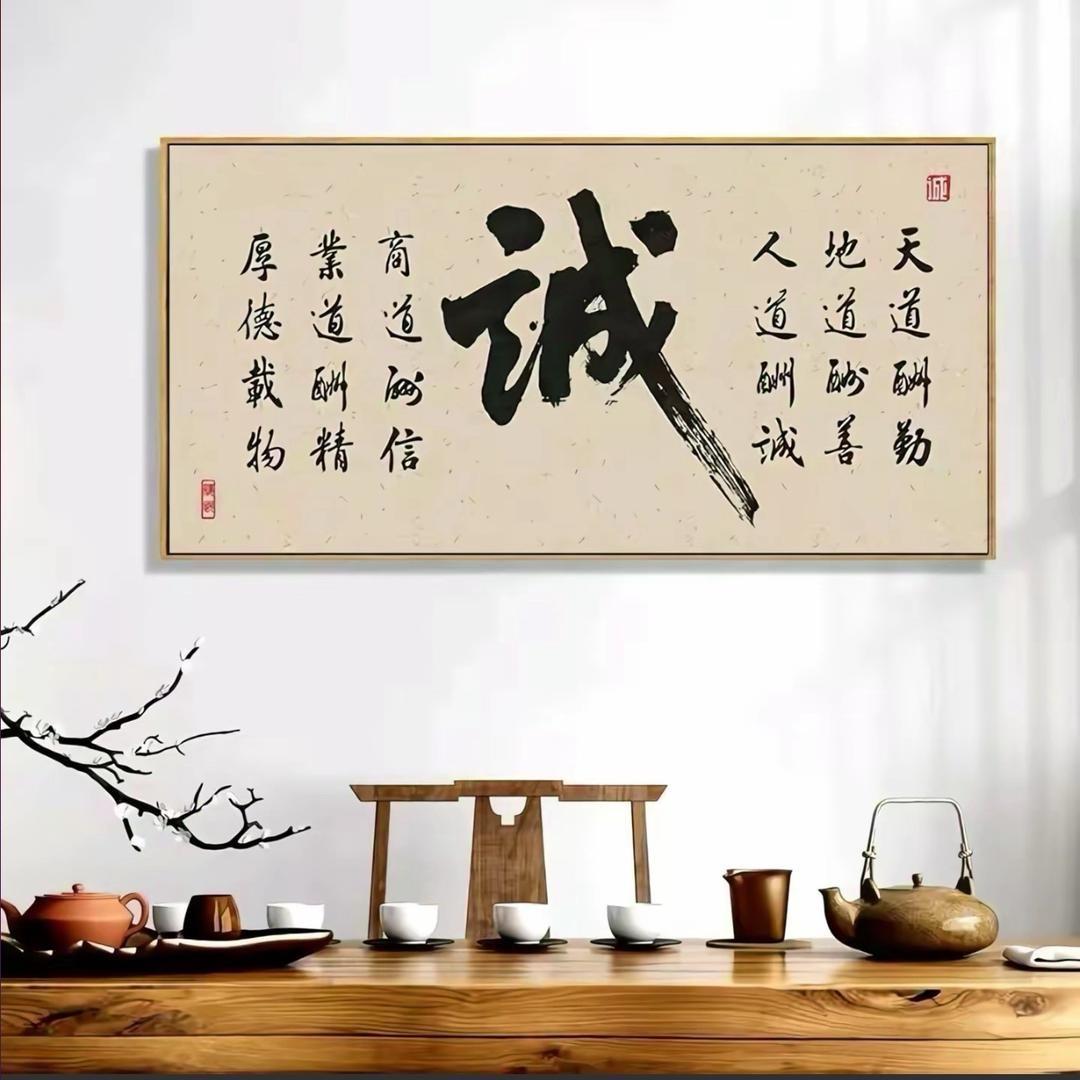 天道酬勤
地道酬善
人道酬誠
誠
商道酬信
業道酬精
厚德載物
誠